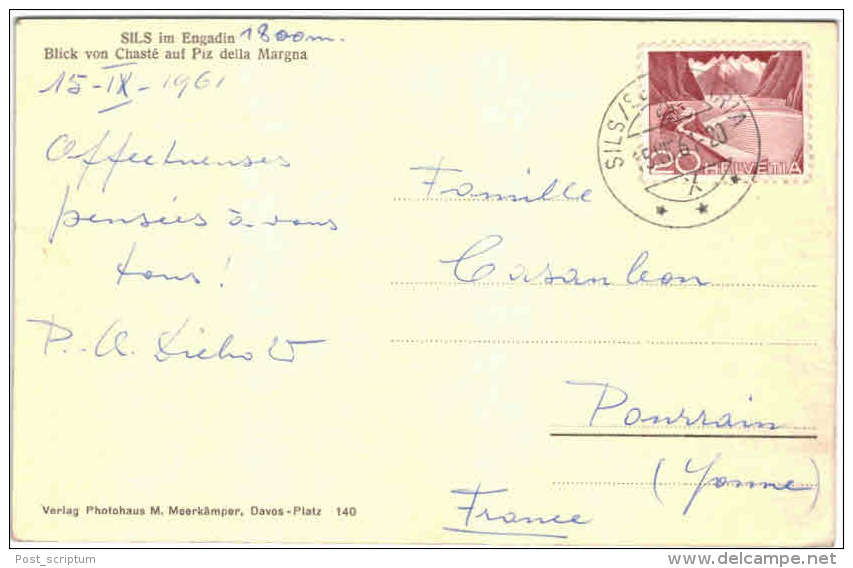 SILS im Engadin 1800m.
Blick von Chasté auf Piz della Margna
15-IX-1961
Affectueuses
pensées à vous
tous!
P. A.
Famille
Casanbon
Pourrain
(Yonne)
France
SILS/SE RIA
20 HELVETIA
Verlag Photohaus M. Meerkämper, Davos-Platz 140
Post_scriptum
www.delcampe.net